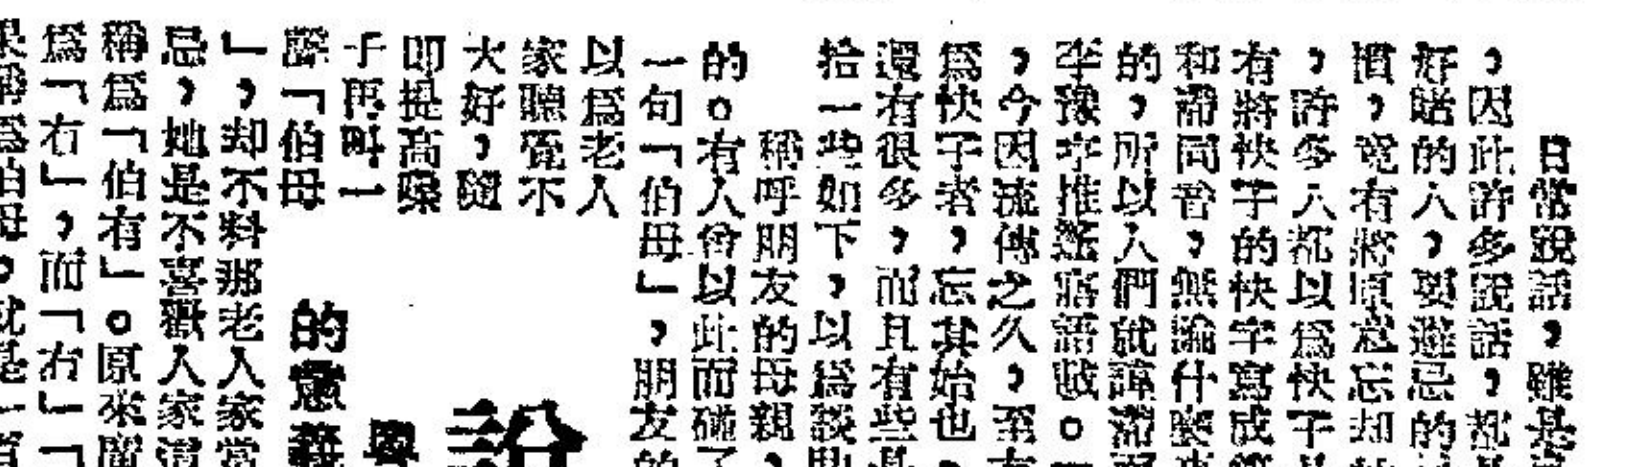 日常說話，雖是
，因此許多說話，都
好話的人，要避忌的
慣，竟有將原意忘却
，許多人都以爲快子
有將快字的快字寫成
和滯同音，無論什麽
的，所以人們就諱滯
李豫亨推蓬寤語贼。
，今因流傳之久，至有
爲快子者，忘其始也，
還有很多，而且有些
拾一些如下，以爲談助
稱呼朋友的母親，
的。有人曾以此而碰了
一句「伯母」，朋友的
以爲老人
家聽覺不
大好，隨
卽提高嗓
子再叫一
聲「伯母
」，却不料那老人家當
忌，她是不喜歡人家這
稱爲「伯有」。原來廣
爲「右」，而「右」「
果稱爲伯母，就是一
說
與
的意義